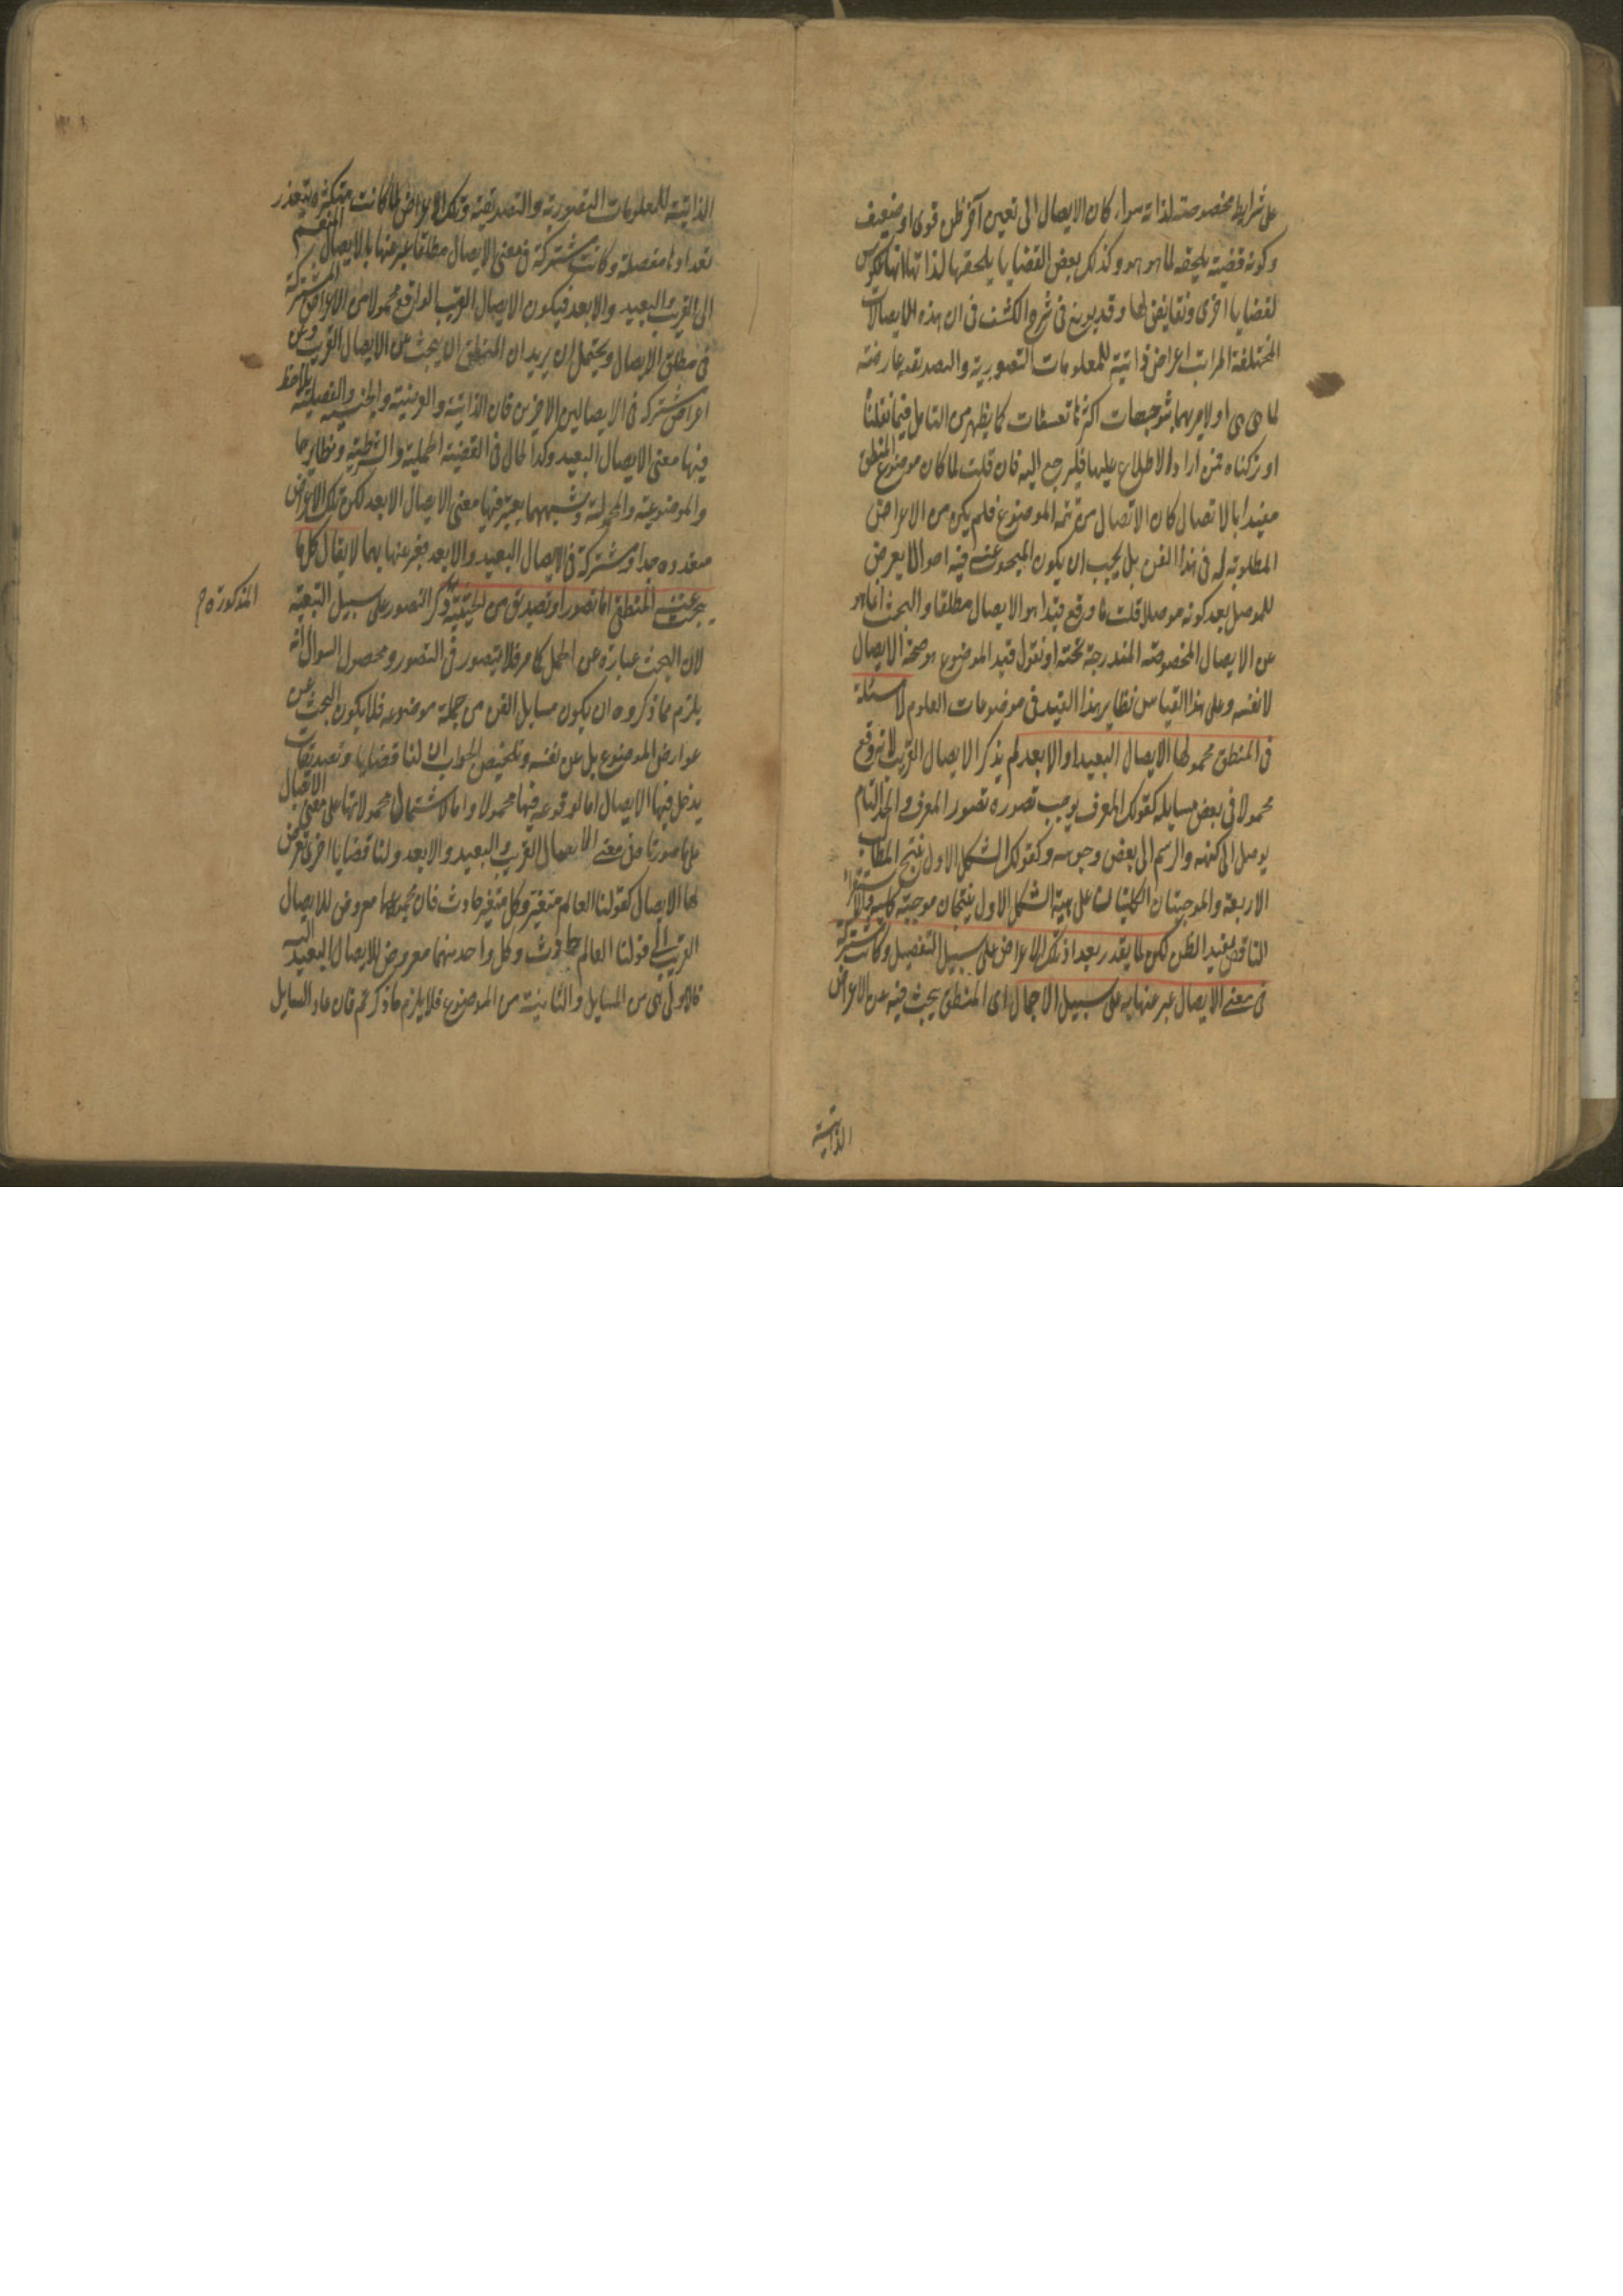 على شرايط مخصوصة لذاته سواء كان الايصال الى تعين آخر ظن قوى او ضعيف
وكونه قضية يلحقه لما هو هو وكذلك بعض القضايا يلحقها لذاتها لانها عكوس
لقضايا اخرى ونقايض لها وقد بين في شرح الكشف في ان هذه الايصالات
المختلفة المراتب اعراض ذاتية للمعلومات التصورية والتصديقية عارضة
لما هى هى او لامر بتوجيهات اكثرها تعسفات كما يظهر من التامل فيما نقلنا
او تركناه فمن اراد الاطلاع عليها فليرجع اليه فان قلت لما كان موضوع المنطق
مقيدا بالاتصال كان الاتصال من تتمة الموضوع فلم يكن من الاعراض
المطلوبة له في هذا الفن بل يجب ان يكون المبحوث عنه فيه احوالا يعرض
للموصل بعد كونه موصلا قلت ما وقع قيدا هو الايصال مطلقا والبحث انما هو
عن الايصال المخصوصة المندرجة تحته او نقول قيد الموضوع هو صحة الايصال
لا نفسه وعلى هذا القياس نظاير هذا القيد في موضوعات العلوم لا مسئلة
في المنطق محمولها الايصال البعيد او الابعد لم يذكر الايصال القريب لانه وقع
محمولا في بعض مسايله كقولك المعرف يوجب تصوره تصور المعرف والحد التام
يوصل الى كنهه والرسم الى بعض وجوهه وكقولك الشكل الاول ينتج المطالب
الاربعة والموجبتان الكليتان على هيئة الشكل الاول ينتجان موجبة كلية والاستقراء
الناقص يفيد الظن لكن لما يعذر تعداد تلك الاعراض على سبيل التفصيل وكانت مشتركة
في معنى الايصال عبر عنها به على سبيل الاجمال اى المنطق يبحث فيه عن الاعراض
الذاتية
الذاتية للمعلومات التصورية والتصديقية وتلك الاعراض لما كانت متكثرة يتعذر
تعدادها مفصلة وكانت مشتركة في معنى الايصال مطلقا عبر عنها بالايصال المنقسم
الى القريب والبعيد والابعد فيكون الايصال القريب الواقع محمولا من الاعراض المشتركة
في مطلق الايصال ويحتمل ان يريد ان المنطق ان يبحث عن الايصال القريب وعن
اعراض مشتركة في الايصالين الاخرين فان الذاتية والعرضية والجنسية والفصلية يلاحظ
فيها معنى الايصال البعيد وكذا الحال في القضية الحملية والشرطية ونظايرها
والموضوعية والمحمولية وشبههما يعتبر فيها معنى الايصال الابعد لكن تلك الاعراض
متعدده جدا ومشتركة في الايصال البعيد والابعد فعبر عنها بهما لا يقال كل ما
يبحث عنه المنطق اما تصور او تصديق من الحيثية ذكر التصور على سبيل التبعية
المذكورة
لان البحث عبارة عن الحمل كما مر فلا يتصور في التصور ومحصول السوال انه
يلزم مما ذكروه ان يكون مسايل الفن من جملة موضوعه فلا يكون البحث عن
عوارض الموضوع بل عن نفسه وتلخيص الجواب ان لنا قضايا وتصديقات
يدخل فيها الايصال اما لوقوعه فيها محمولا واما لاشتمال محمولاتها على معنى الاتصال
على ما صورنا من معنى الايصال القريب والبعيد والابعد ولنا قضايا اخرى تعرض
لها الايصال كقولنا العالم متغير وكل متغير حادث فان مجموعهما معروض للايصال
القريب الى قولنا العالم حادث وكل واحد منهما معروض للايصال البعيد اليه
فالاولى هى من المسايل والثانية من الموضوع فلا يلزم ما ذكرتم فان عاد السايل